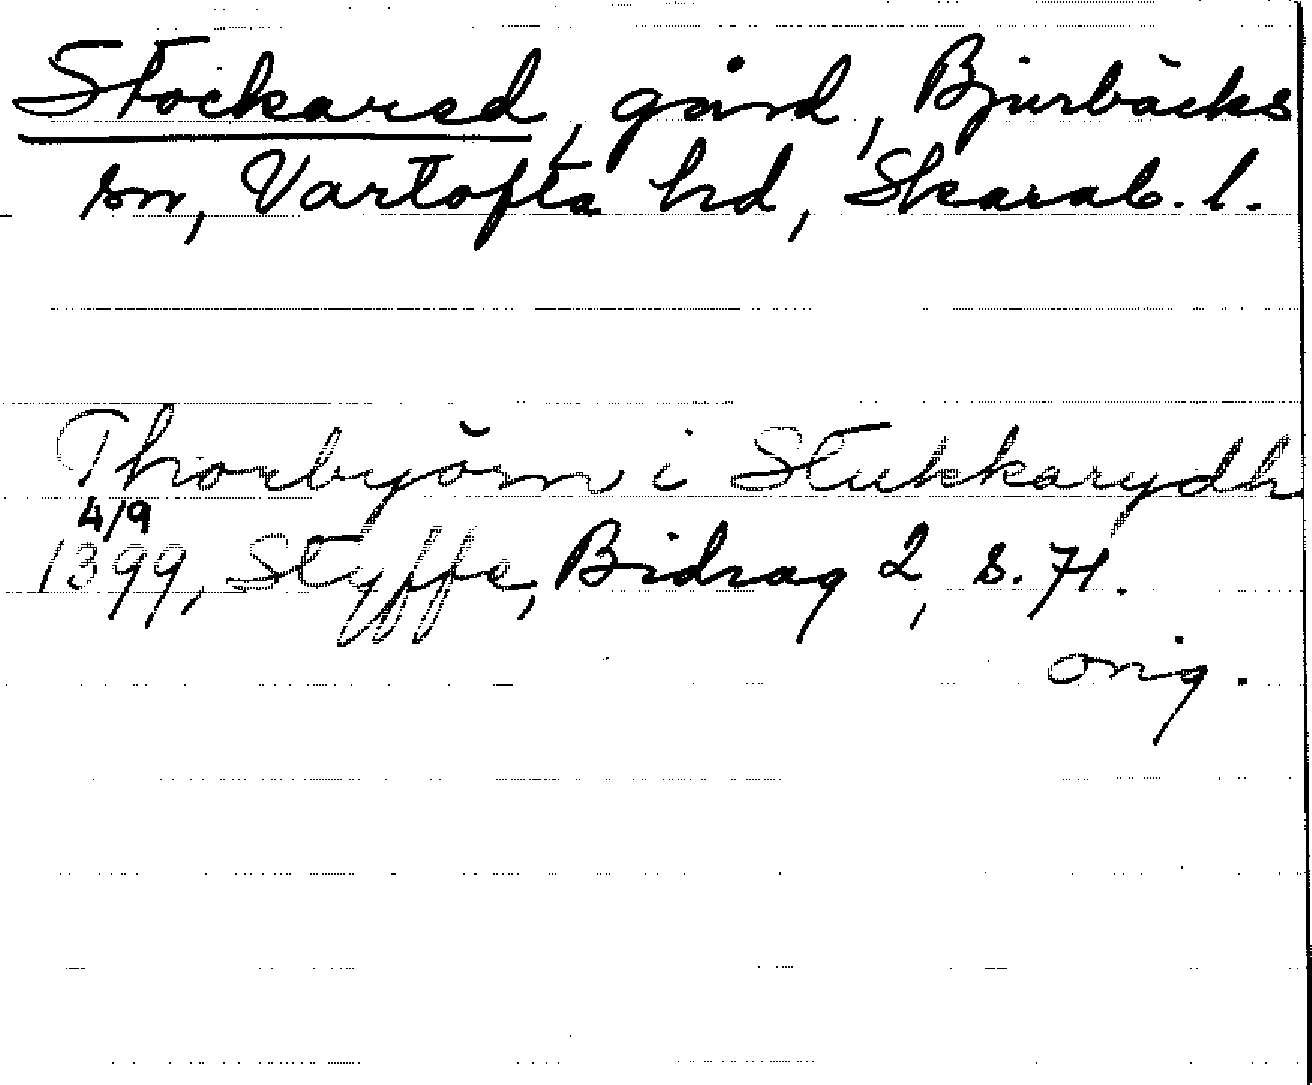 Stockarsd, gård, Bjurbäcks
sn, Vartofta hd, Skarab. l.
Thorbyörn i Stukkarydh
4/9
1399, Styffe, Bidrag 2, s. 71.
orig.